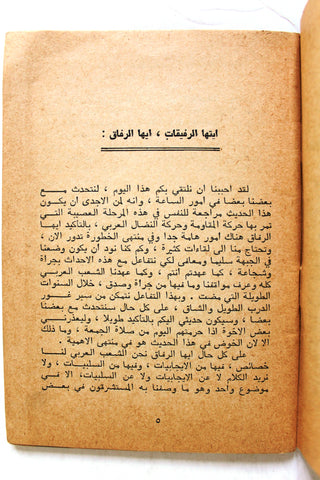 ايتها الرفيقات ، ايها الرفاق :
لقد احببنا ان نلتقي بكم هذا اليوم ، لنتحدث مع
بعضنا بعضا في امور الساعة ، وانه لمن الاجدى ان يكون
هذا الحديث مراجعة للنفس في هذه المرحلة العصيبة التي
تمر بها حركة المقاومة وحركة النضال العربي ، بالتأكيد ايها
الرفاق هناك امور هامة جدا وفي منتهى الخطورة تدور الان ،
وتحتاج منا الى لقاءات كثيرة ، وكم كنا نود ان يكون وضعنا
في الجبهة سليما ومعافى لكي نتفاعل مع هذه الاحداث بجرأة
وشجاعة ، كما عهدتم انتم ، وكما عهدنا الشعب العربي
كله وعرف مواقفنا وما فيها من جرأة وصدق ، خلال السنوات
الطويلة التي مضت . وبهذا التفاعل نتمكن من سبر غور
الدرب الطويل والشاق ، على كل حال سنتحدث مع بعضنا
بعضا ، وسيكون حديثي اليكم بالتأكيد طويلا ، وليعذرني
بعض الاخوة اذا حرمتهم اليوم من صلاة الجمعة ، وما ذلك
الا لان الخوض في هذا الحديث هو في منتهى الاهمية .
على كل حال ايها الرفاق نحن الشعب العربي لنا
خصائص ، فيها من الايجابيات ، وفيها من السلبيات ، ولا
نريد الكلام لا عن الايجابيات ولا عن السلبيات، الا في
موضوع واحد وهو ما وصفنا به المستشرقون في بعض
٥